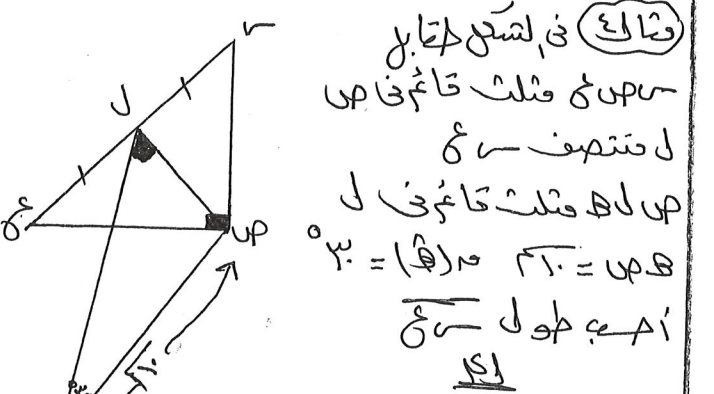 مثال٤ في الشكل المقابل
س ص ع مثلث قائم في ص
ل منتصف س ع
ص ل ھ مثلث قائم في ل
ھ ص = ١٠سم ق(ھ) = ٣٠°
أحسب طول س ع
الحل
س
ل
ع
ص
١٠سم
٣٠